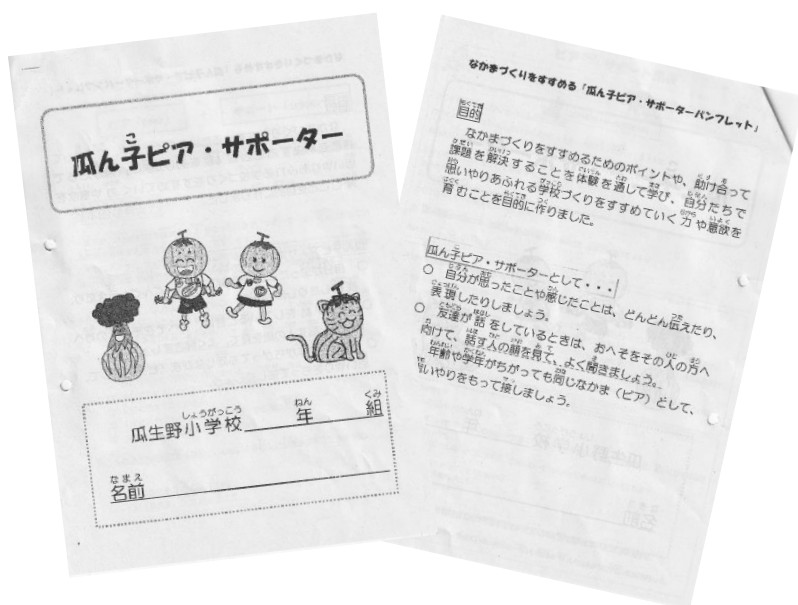 瓜ん子ピア・サポーター
瓜生野小学校 年 組
名前
なかまづくりをすすめる「瓜ん子ピア・サポーターパンフレット」
目的
なかまづくりをすすめるためのポイントや、助け合って
課題を解決することを体験を通して学び、自分たちで
思いやりあふれる学校づくりをすすめていく力や意欲を
育むことを目的に作りました。
瓜ん子ピア・サポーターとして・・・
○ 自分が思ったことや感じたことは、どんどん伝えたり、
表現したりしましょう。
○ 友達が話をしているときは、おへそをその人の方へ
向けて、話す人の顔を見て、よく聞きましょう。
年齢や学年がちがっても同じなかま（ピア）として、
いやりをもって接しましょう。